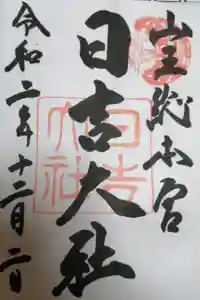 山王総本宮
日吉大社
令和二年十二月二日
日吉大社